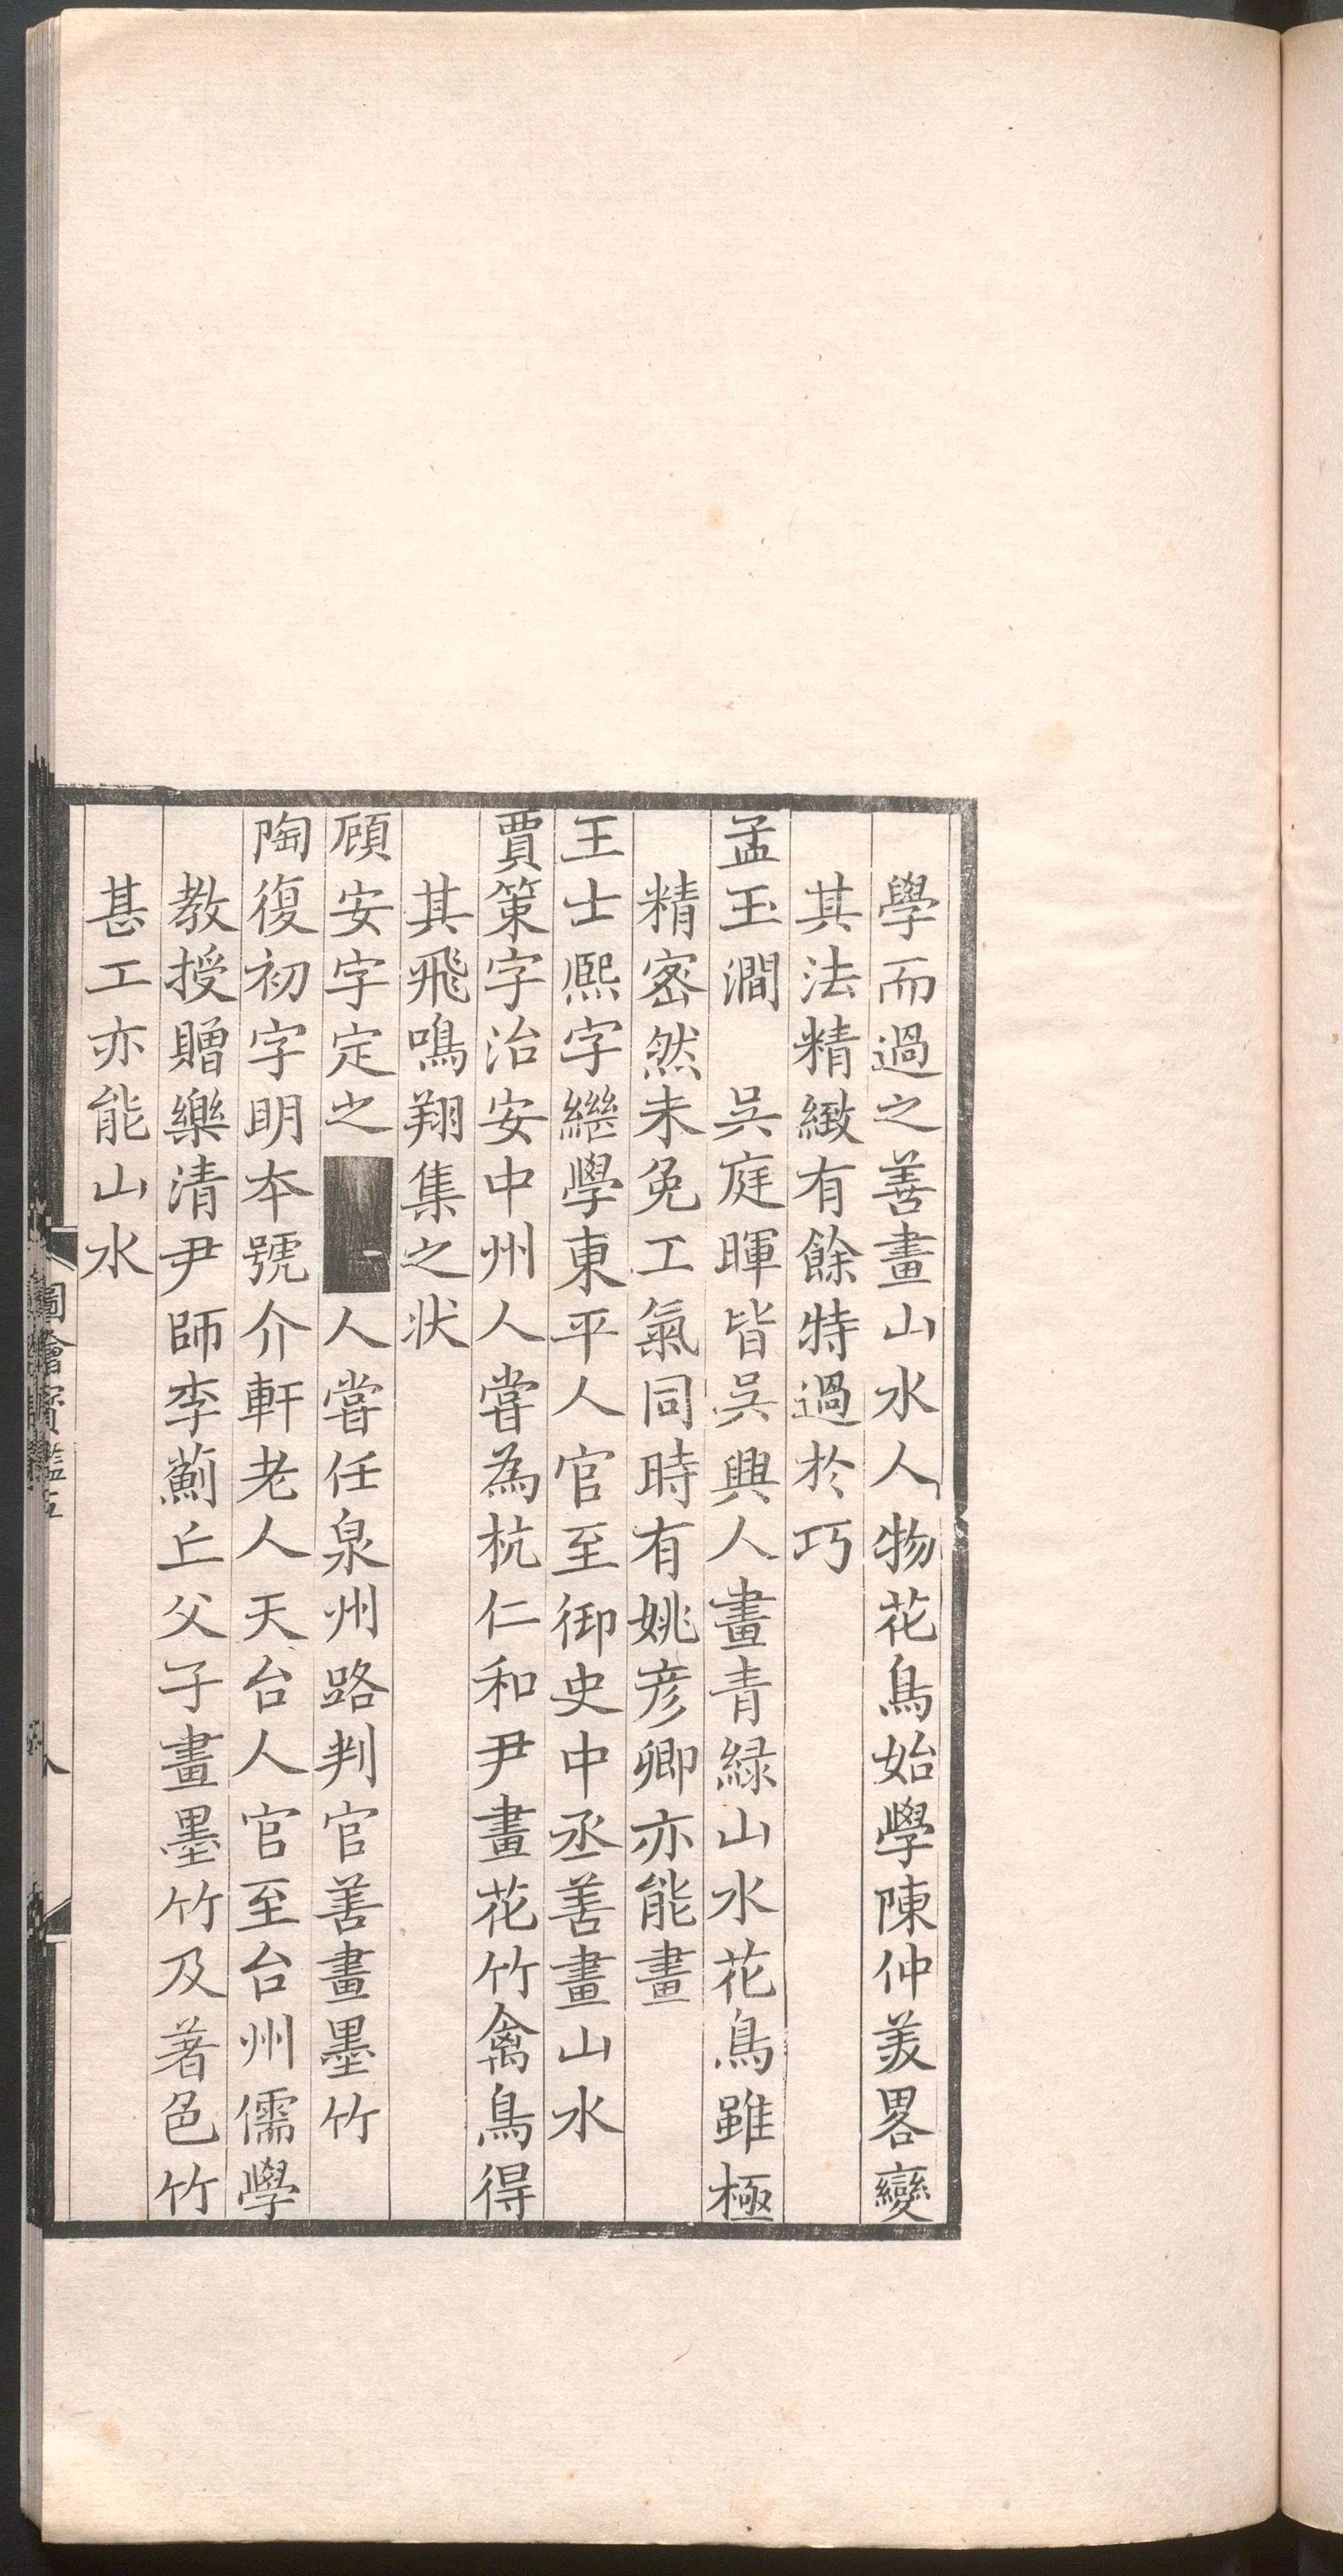 學而過之善畫山水人物花鳥始學陳仲美畧變
其法精緻有餘特過於巧
孟玉澗　吳庭暉皆吳興人畫青緑山水花鳥雖極
精宻然未免工氣同時有姚彦卿亦能畫
王士熈字繼學東平人官至御史中丞善畫山水
賈策字治安中州人嘗為杭仁和尹畫花竹禽鳥得
其飛鳴翔集之状
顧安字定之人嘗任泉州路判官善畫墨竹
陶復初字明本號介軒老人天台人官至台州儒學
教授贈樂清尹師李薊丘父子畫墨竹及著色竹
甚工亦能山水
圖繪寳鑑五
八